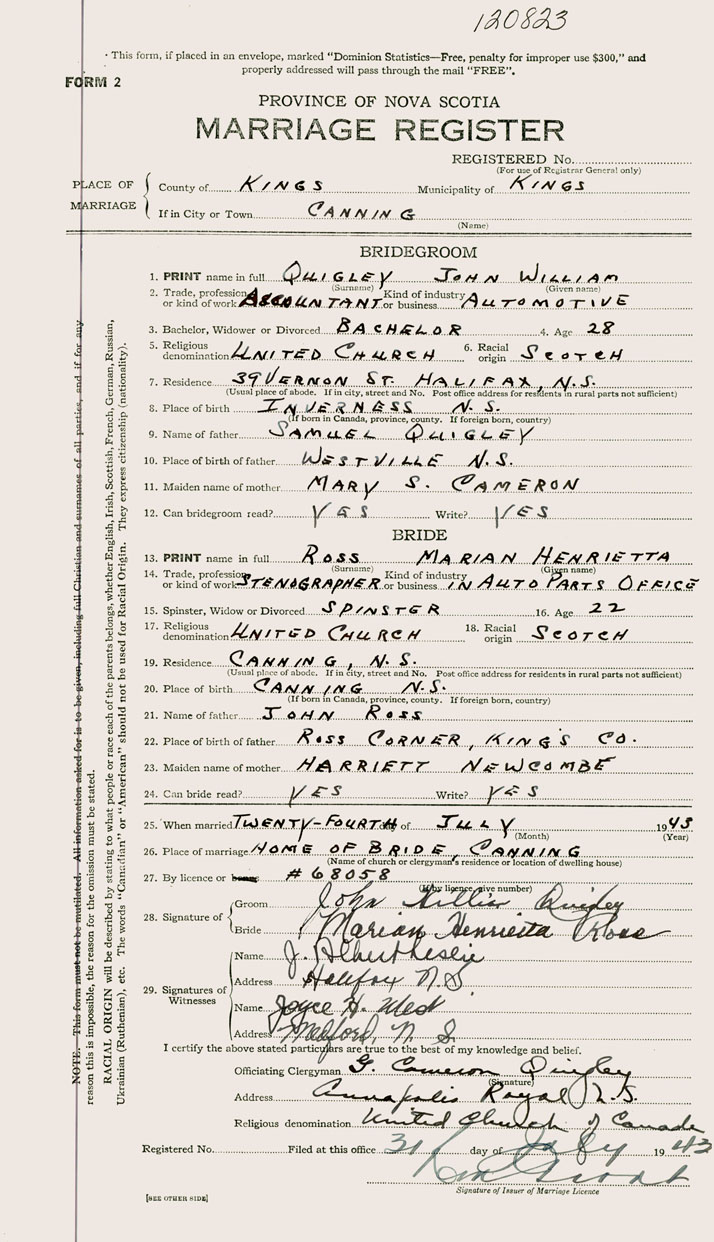 120823
· This form, if placed in an envelope, marked "Dominion Statistics—Free, penalty for improper use $300," and
properly addressed will pass through the mail "FREE".
FORM 2
PROVINCE OF NOVA SCOTIA
MARRIAGE REGISTER
REGISTERED No.
(For use of Registrar General only)
PLACE OF MARRIAGE
County of KINGS Municipality of KINGS
If in City or Town CANNING
(Name)
BRIDEGROOM
1. PRINT name in full QUIGLEY JOHN WILLIAM
(Surname) (Given name)
2. Trade, profession or kind of work ACCOUNTANT Kind of industry or business AUTOMOTIVE
3. Bachelor, Widower or Divorced BACHELOR 4. Age 28
5. Religious denomination UNITED CHURCH 6. Racial origin SCOTCH
7. Residence 39 VERNON ST. HALIFAX, N.S.
(Usual place of abode. If in city, street and No. Post office address for residents in rural parts not sufficient)
8. Place of birth INVERNESS N.S.
(If born in Canada, province, county. If foreign born, country)
9. Name of father SAMUEL QUIGLEY
10. Place of birth of father WESTVILLE N.S.
11. Maiden name of mother MARY S. CAMERON
12. Can bridegroom read? YES Write? YES
BRIDE
13. PRINT name in full ROSS MARIAN HENRIETTA
(Surname) (Given name)
14. Trade, profession or kind of work STENOGRAPHER Kind of industry or business IN AUTO PARTS OFFICE
15. Spinster, Widow or Divorced SPINSTER 16. Age 22
17. Religious denomination UNITED CHURCH 18. Racial origin SCOTCH
19. Residence CANNING, N.S.
(Usual place of abode. If in city, street and No. Post office address for residents in rural parts not sufficient)
20. Place of birth CANNING N.S.
(If born in Canada, province, county. If foreign born, country)
21. Name of father JOHN ROSS
22. Place of birth of father ROSS CORNER, KING'S CO.
23. Maiden name of mother HARRIETT NEWCOMBE
24. Can bride read? YES Write? YES
25. When married TWENTY-FOURTH day of JULY 1943
(Month) (Year)
26. Place of marriage HOME OF BRIDE, CANNING
(Name of church or clergyman's residence or location of dwelling house)
27. By licence or banns # 68058
(If by licence, give number)
28. Signature of
Groom John William Quigley
Bride Marian Henrietta Ross
29. Signatures of Witnesses
Name J. Albert Leslie
Address Halifax N.S.
Name Joyce H. West
Address Medford, N.S.
I certify the above stated particulars are true to the best of my knowledge and belief.
Officiating Clergyman G. Cameron Quigley
(Signature)
Address Annapolis Royal N.S.
Religious denomination United Church of Canada
Registered No. Filed at this office 31 day of July 1943
Signature of Issuer of Marriage Licence
[SEE OTHER SIDE]
NOTE. This form must not be mutilated. All information asked for is to be given, including full Christian and surnames of all parties, and if for any
reason this is impossible, the reason for the omission must be stated.
RACIAL ORIGIN will be described by stating to what people or race each of the parents belongs, whether English, Irish, Scottish, French, German, Russian,
Ukrainian (Ruthenian), etc. The words "Canadian" or "American" should not be used for Racial Origin. They express citizenship (nationality).